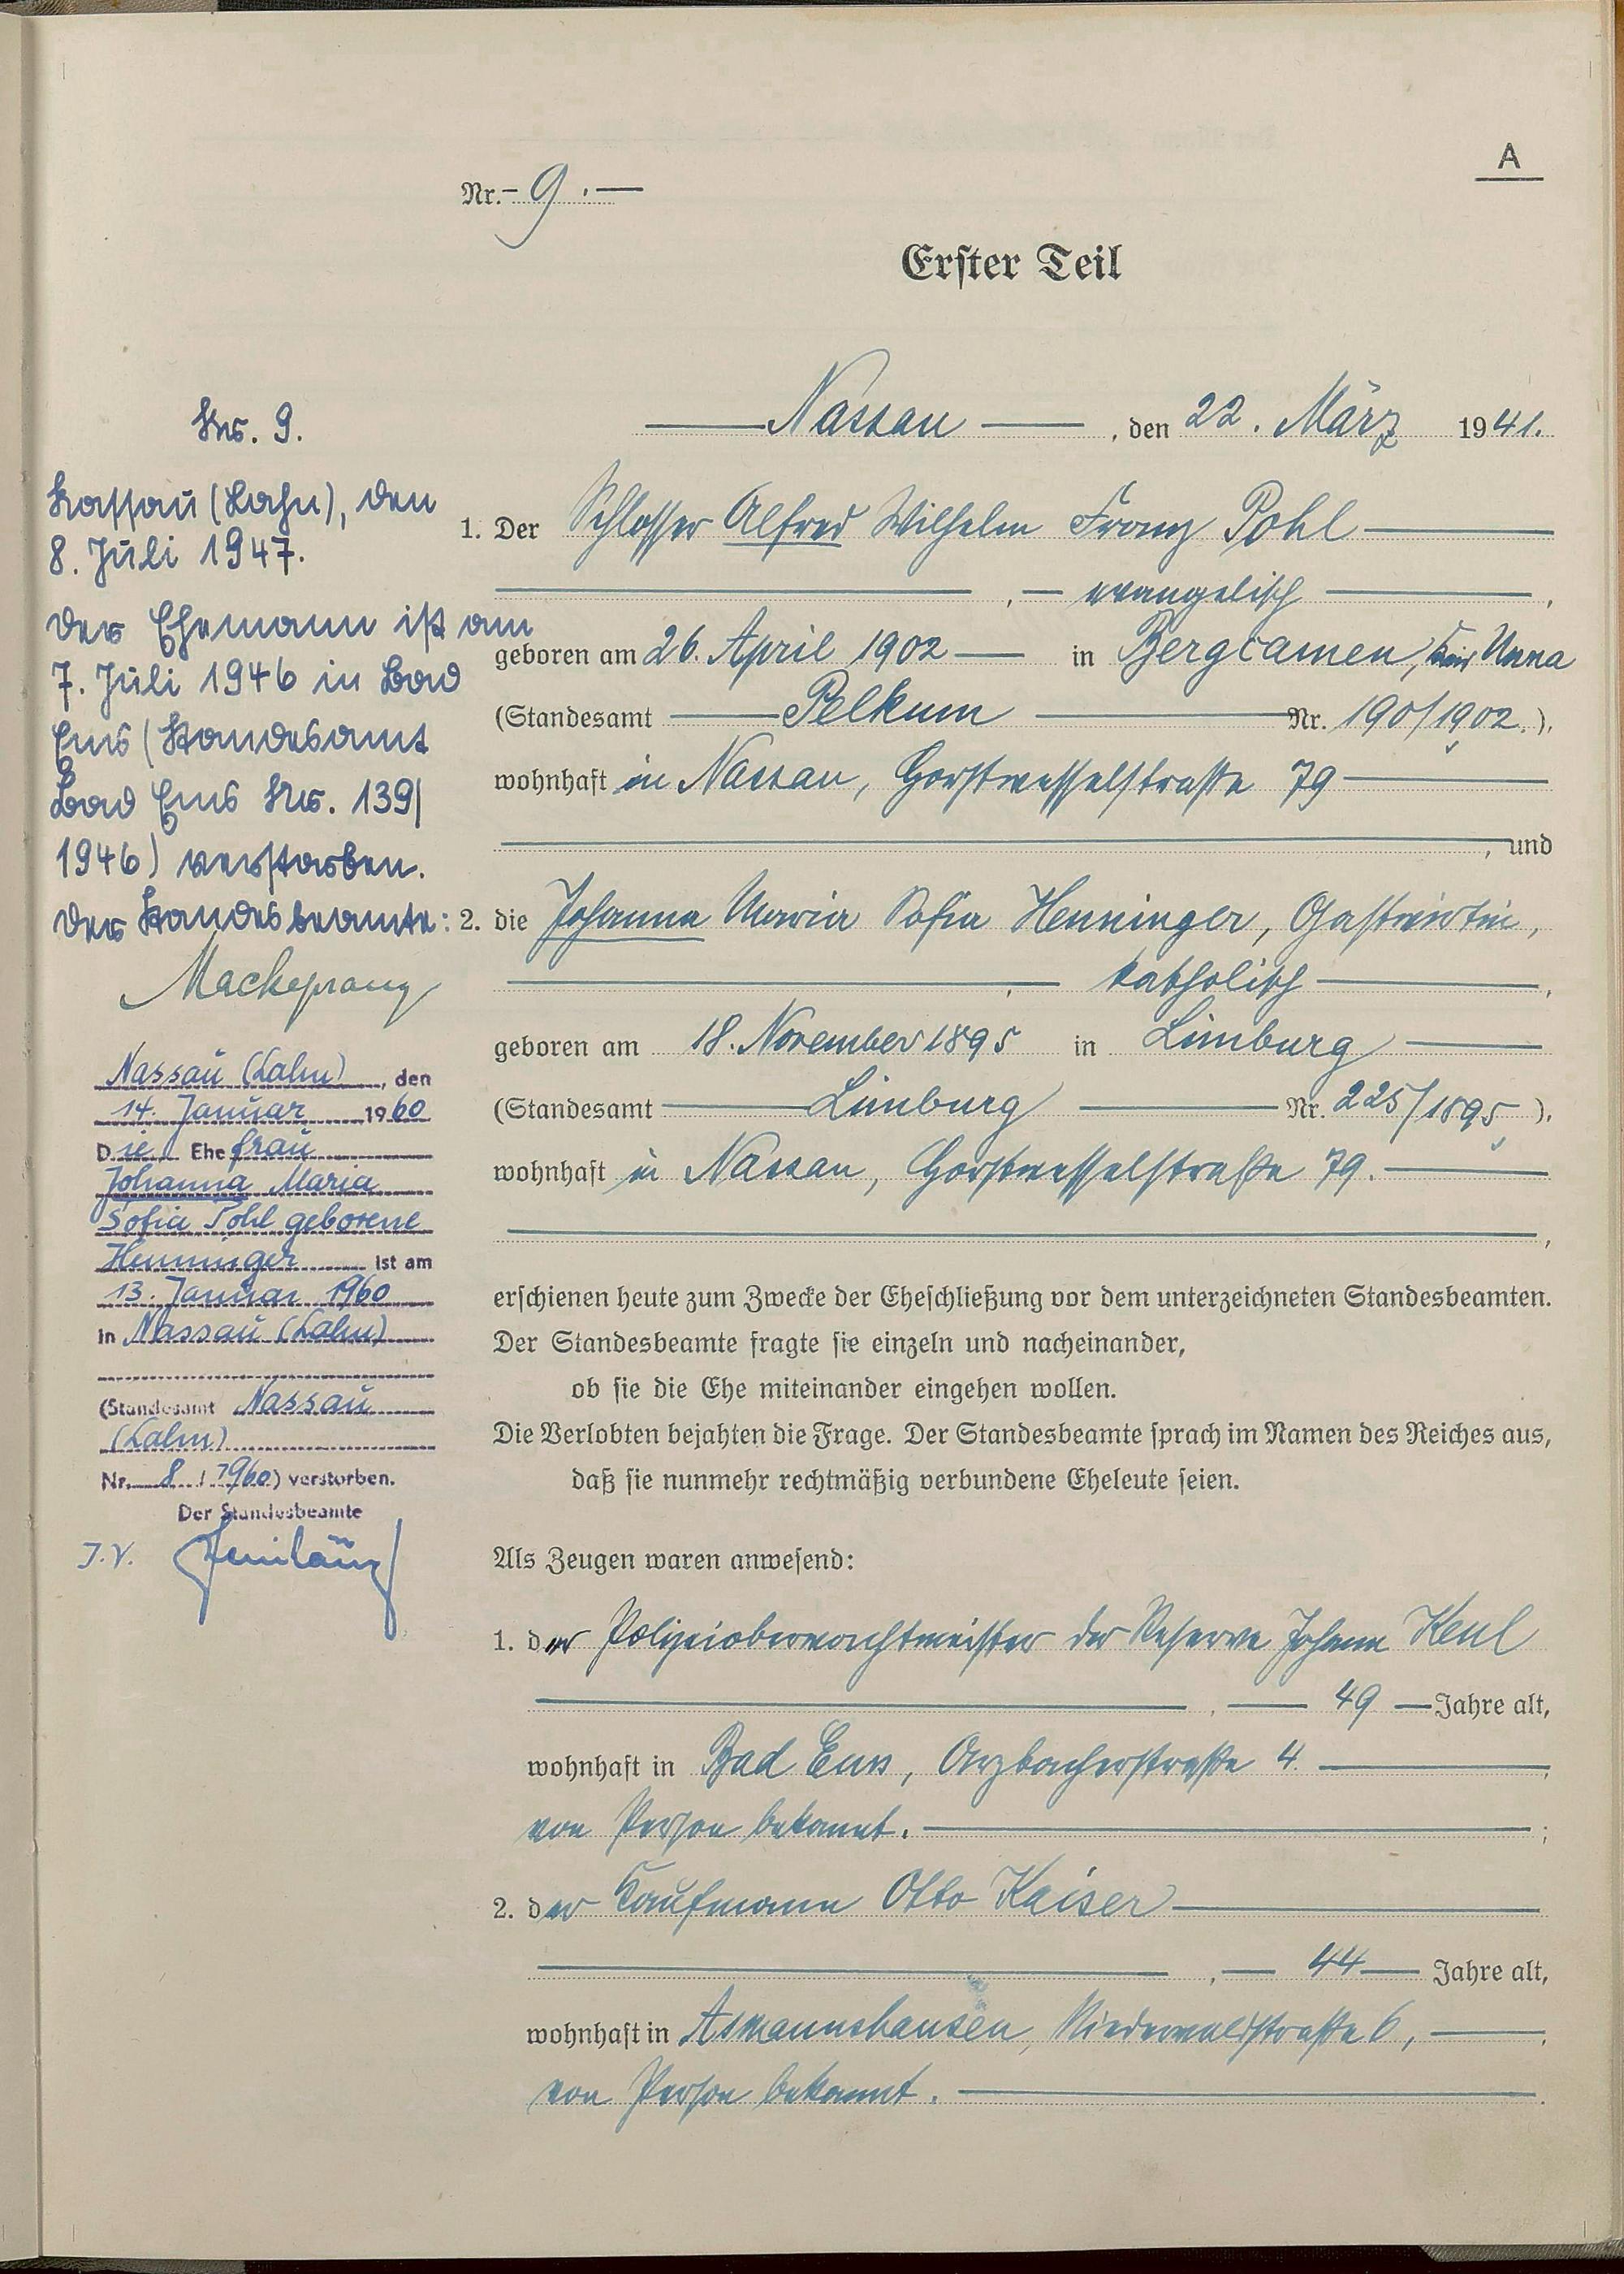 A
Nr. 9.
Erster Teil
Nassau, den 22. März 1941.
1. Der Schlosser Alfred Wilhelm Franz Pohl
, evangelisch,
geboren am 26. April 1902 in Bergcamen, Kreis Unna
(Standesamt Pelkum Nr. 190/1902.),
wohnhaft in Nassau, Horstwesselstraße 79
, und
2. die Johanna Maria Sofia Henninger, Gastwirtin,
, katholisch,
geboren am 18. November 1895 in Limburg
(Standesamt Limburg Nr. 225/1895),
wohnhaft in Nassau, Horstwesselstraße 79.
,
erschienen heute zum Zwecke der Eheschließung vor dem unterzeichneten Standesbeamten.
Der Standesbeamte fragte sie einzeln und nacheinander,
ob sie die Ehe miteinander eingehen wollen.
Die Verlobten bejahten die Frage. Der Standesbeamte sprach im Namen des Reiches aus,
daß sie nunmehr rechtmäßig verbundene Eheleute seien.
Als Zeugen waren anwesend:
1. der Polizeioberwachtmeister der Reserve Johann Keul
, 49 Jahre alt,
wohnhaft in Bad Ems, Arzbacherstraße 4.
von Person bekannt. ;
2. der Kaufmann Otto Kaiser
, 44 Jahre alt,
wohnhaft in Asmannshausen, Niederwaldstraße 6,
von Person bekannt.
Nr. 9.
Nassau (Lahn), den
8. Juli 1947.
Der Ehemann ist am
7. Juli 1946 in Bad
Ems (Standesamt
Bad Ems Nr. 139/
1946) verstorben.
Der Standesbeamte:
Mackeprang
Nassau (Lahn), den
14. Januar 1960
Die Ehefrau
Johanna Maria
Sofia Pohl geborene
Henninger ist am
13. Januar 1960
in Nassau (Lahn)
(Standesamt Nassau
(Lahn)
Nr. 8 / 1960) verstorben.
Der Standesbeamte
J.V.